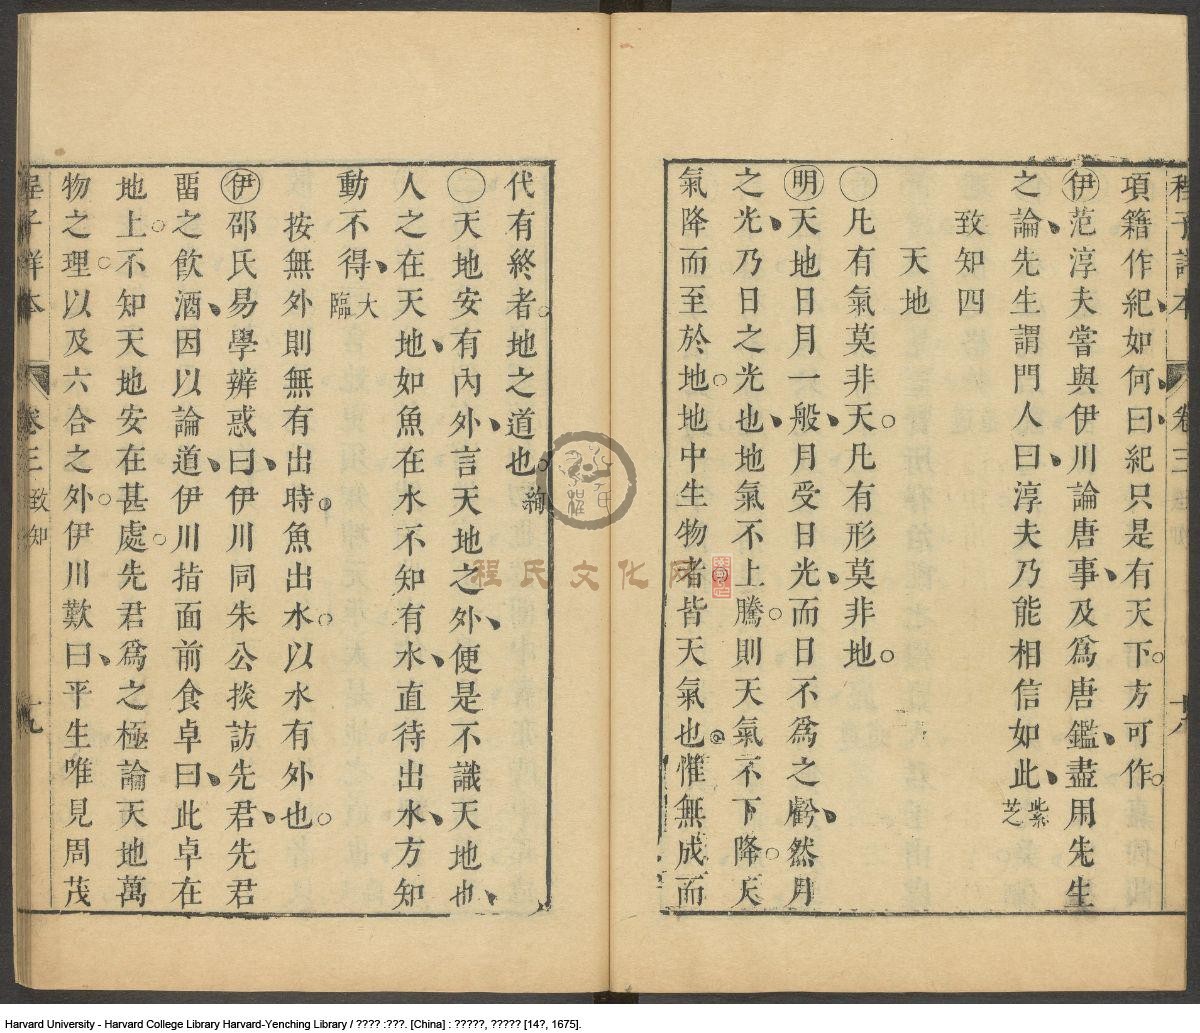 程子詳本 卷三 致知 十八
項籍作紀如何曰紀只是有天下方可作
伊范淳夫嘗與伊川論唐事及爲唐鑑盡用先生
之論先生謂門人曰淳夫乃能相信如此紫芝
致知四
天地
〇凡有氣莫非天凡有形莫非地
明天地日月一般月受日光而日不爲之虧然月
之光乃日之光也地氣不上騰則天氣不下降天
氣降而至於地地中生物者皆天氣也惟無成而
代有終者地之道也絢
〇天地安有內外言天地之外便是不識天地也
人之在天地如魚在水不知有水直待出水方知
動不得大臨
按無外則無有出時魚出水以水有外也
伊邵氏易學辨惑曰伊川同朱公掞訪先君先君
畱之飲酒因以論道伊川指面前食卓曰此卓在
地上不知天地安在甚處先君爲之極論天地萬
物之理以及六合之外伊川歎曰平生唯見周茂
程子詳本 卷三 致知 十九
程氏文化网
Harvard University - Harvard College Library Harvard-Yenching Library / ???? :???. [China] : ?????, ????? [14?, 1675].